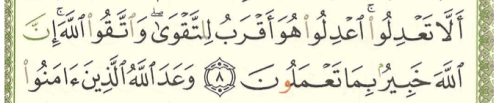 أَلَّا تَعْدِلُوا۟ ۚ ٱعْدِلُوا۟ هُوَ أَقْرَبُ لِلتَّقْوَىٰ ۖ وَٱتَّقُوا۟ ٱللَّهَ ۚ إِنَّ
ٱللَّهَ خَبِيرٌۢ بِمَا تَعْمَلُونَ ٨ وَعَدَ ٱللَّهُ ٱلَّذِينَ ءَامَنُوا۟